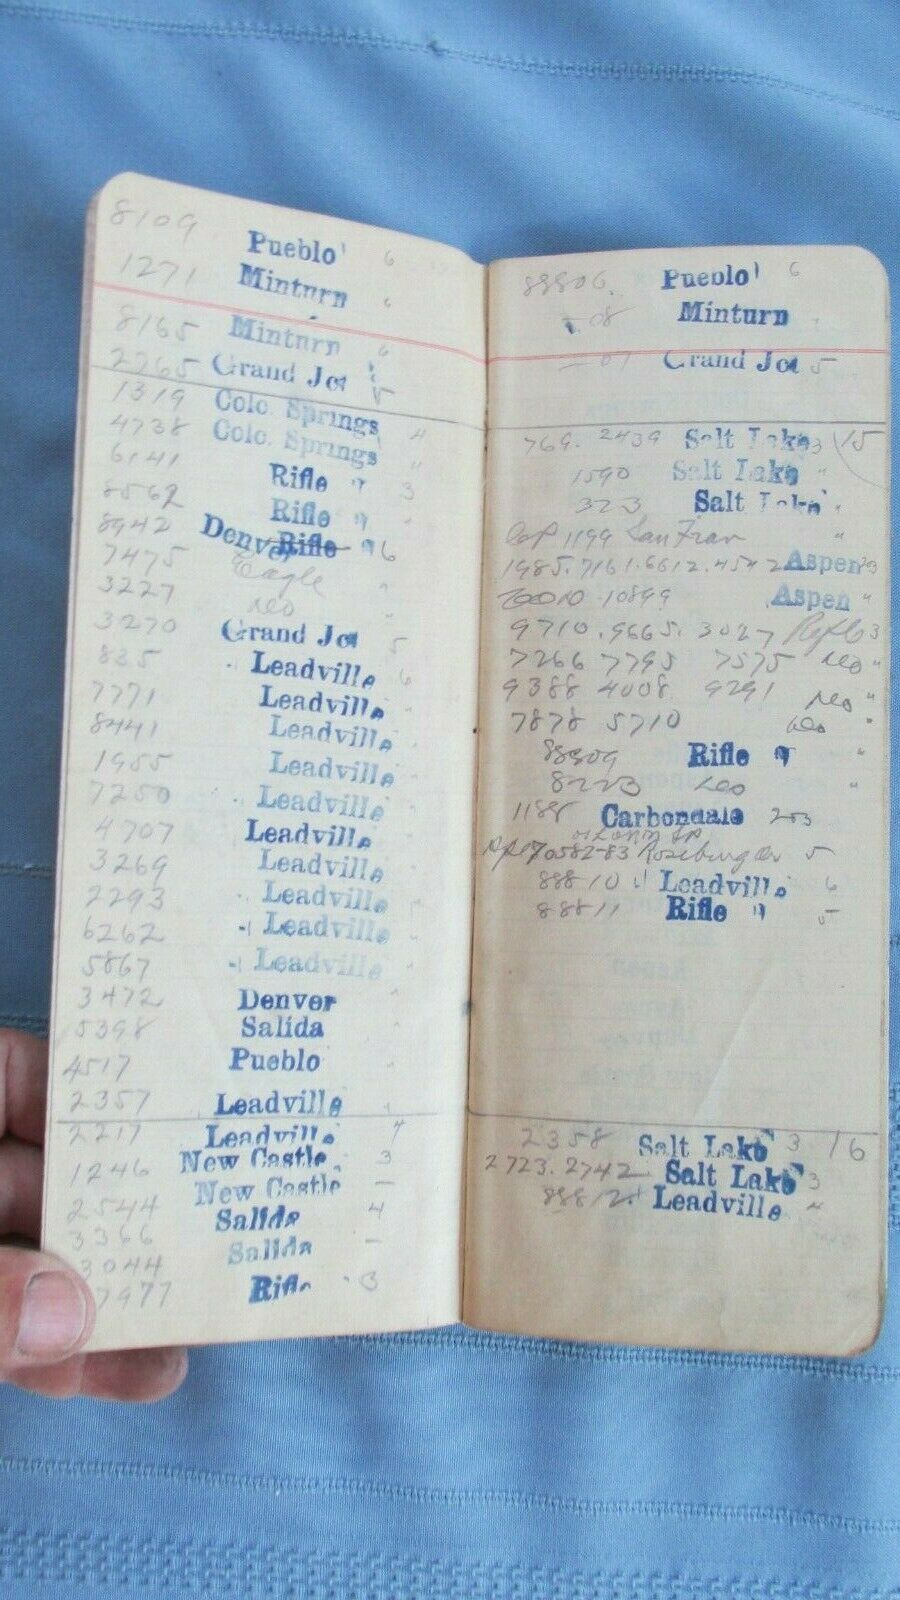 8109 Pueblo 6
1271 Minturn "
8165 Minturn 6
2265 Grand Jct 5
1319 Colo. Springs 4
4738 Colo. Springs "
6141 Rifle " 3
8562 Rifle "
8942 Denver Rifle 6
7475 Eagle "
3227 do "
3270 Grand Jct 5
835 Leadville 6
7771 Leadville "
8441 Leadville
1955 Leadville
7250 Leadville
4707 Leadville
3269 Leadville
2293 Leadville
6262 Leadville
5867 Leadville "
3472 Denver "
5398 Salida "
4517 Pueblo "
2357 Leadville "
2217 Leadville 4
1246 New Castle 3
2544 New Castle –
3366 Salida 4
3044 Salida –
7977 Rifle 3
88806 Pueblo 6
08 Minturn
07 Grand Jct 5
769. 2439 Salt Lake 3 15
1590 Salt Lake "
323 Salt Lake "
1199 San Fran "
1985. 7161. 6612. 4542 Aspen
10899 Aspen "
9710. 9665. 3027 Rifle 3
7266 7795 7575 do "
9388 4008 9291 do "
7878 5710 do "
88809 Rifle "
8223 do "
1188 Carbondale
70582-83 Roseburg Or 5
88810 Leadville 6
88811 Rifle 5
2358 Salt Lake 3 16
2723. 2742 Salt Lake 3
88812 Leadville 4